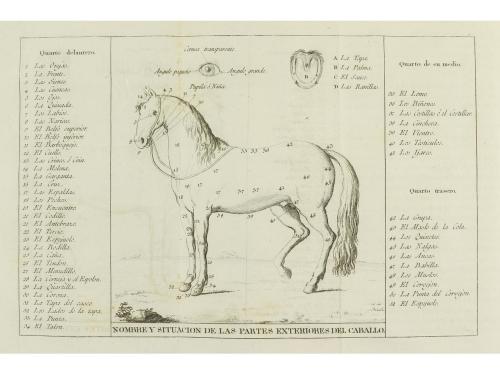 Quarto delantero.
1 Las Orejas.
2 La Frente.
3 Las Sienes
4 Las Cuencas.
5 Los Ojos.
6 La Quixada.
7 Los Labios.
8 Las Narices.
9 El Belfo superior.
10 El Belfo inferior.
11 El Barboquejo.
12 El Cuello.
14 La Melena.
15 La Garganta.
16 La Cruz.
17 Las Espaldas.
18 Los Pechos.
19 El Encuentro.
20 El Codillo.
21 El Antebrazo.
22 El Tercio.
23 El Espejuelo.
24 La Rodilla.
25 La Caña.
26 El Tendon.
27 El Menudillo.
28 La Cerneja y el Espolon.
29 La Quartilla.
30 La Corona.
31 La Tapa del casco.
32 Los Lados de la tapa.
33 La Punta.
34 El Talon.
Cornea transparente.
Angulo pequeño
Angulo grande.
Pupila ó Niña.
A La Tapa.
B La Palma.
C El Sauco.
D Las Ranillas.
Quarto de en medio.
35 El Lomo.
36 Los Riñones.
37 Las Costillas ó el Costillar.
38 La Cinchera.
39 El Vientre.
40 Los Testiculos.
41 Los Ijares.
Quarto trasero.
42 La Grupa.
43 El Maslo de la Cola.
45 Las Nalgas.
46 Las Ancas.
47 La Babilla.
48 Los Muslos.
49 El Corvejon.
50 La Punta del Corvejon.
51 El Espejuelo.
NOMBRE Y SITUACION DE LAS PARTES EXTERIORES DEL CABALLO.